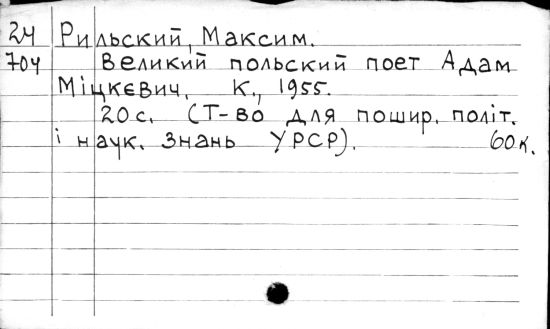 24 Рильский, Максим.
704 Великий польский поет Адам
Міцкєвич. К., 1955.
20 с. (Т-во для пошир. політ.
і наук. знань УРСР). 60к.